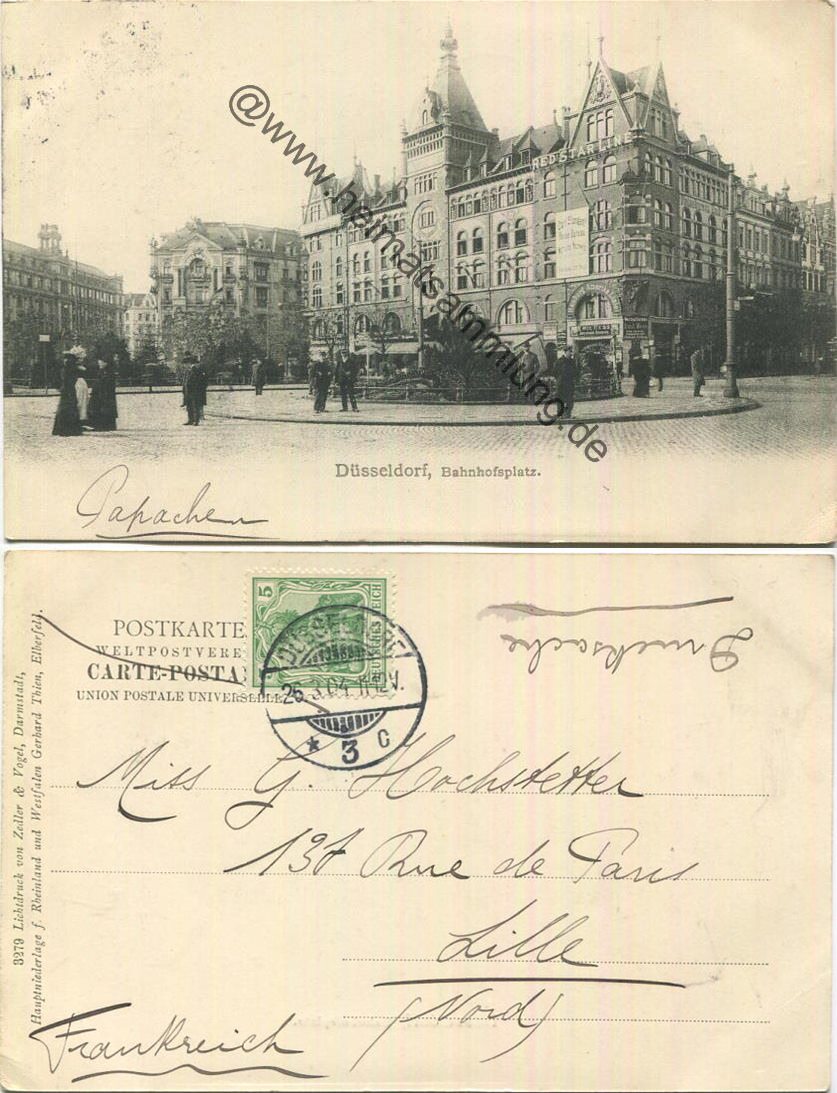 @www.heimatsammlung.de
RED STAR LINE
Düsseldorf, Bahnhofsplatz.
Papachen
POSTKARTE
WELTPOSTVERE
CARTE-POSTA
UNION POSTALE UNIVERSELLE
5
DEUTSCHES REICH
DÜSSELDORF
25.3.04.11-12V.
* 3 c
Drucksache
Miss G. Hochstetter
137 Rue de Paris
Lille
(Nord)
Frankreich
3279 Lichtdruck von Zedler & Vogel, Darmstadt,
Hauptniederlage f. Rheinland und Westfalen Gerhard Thien, Elberfeld.